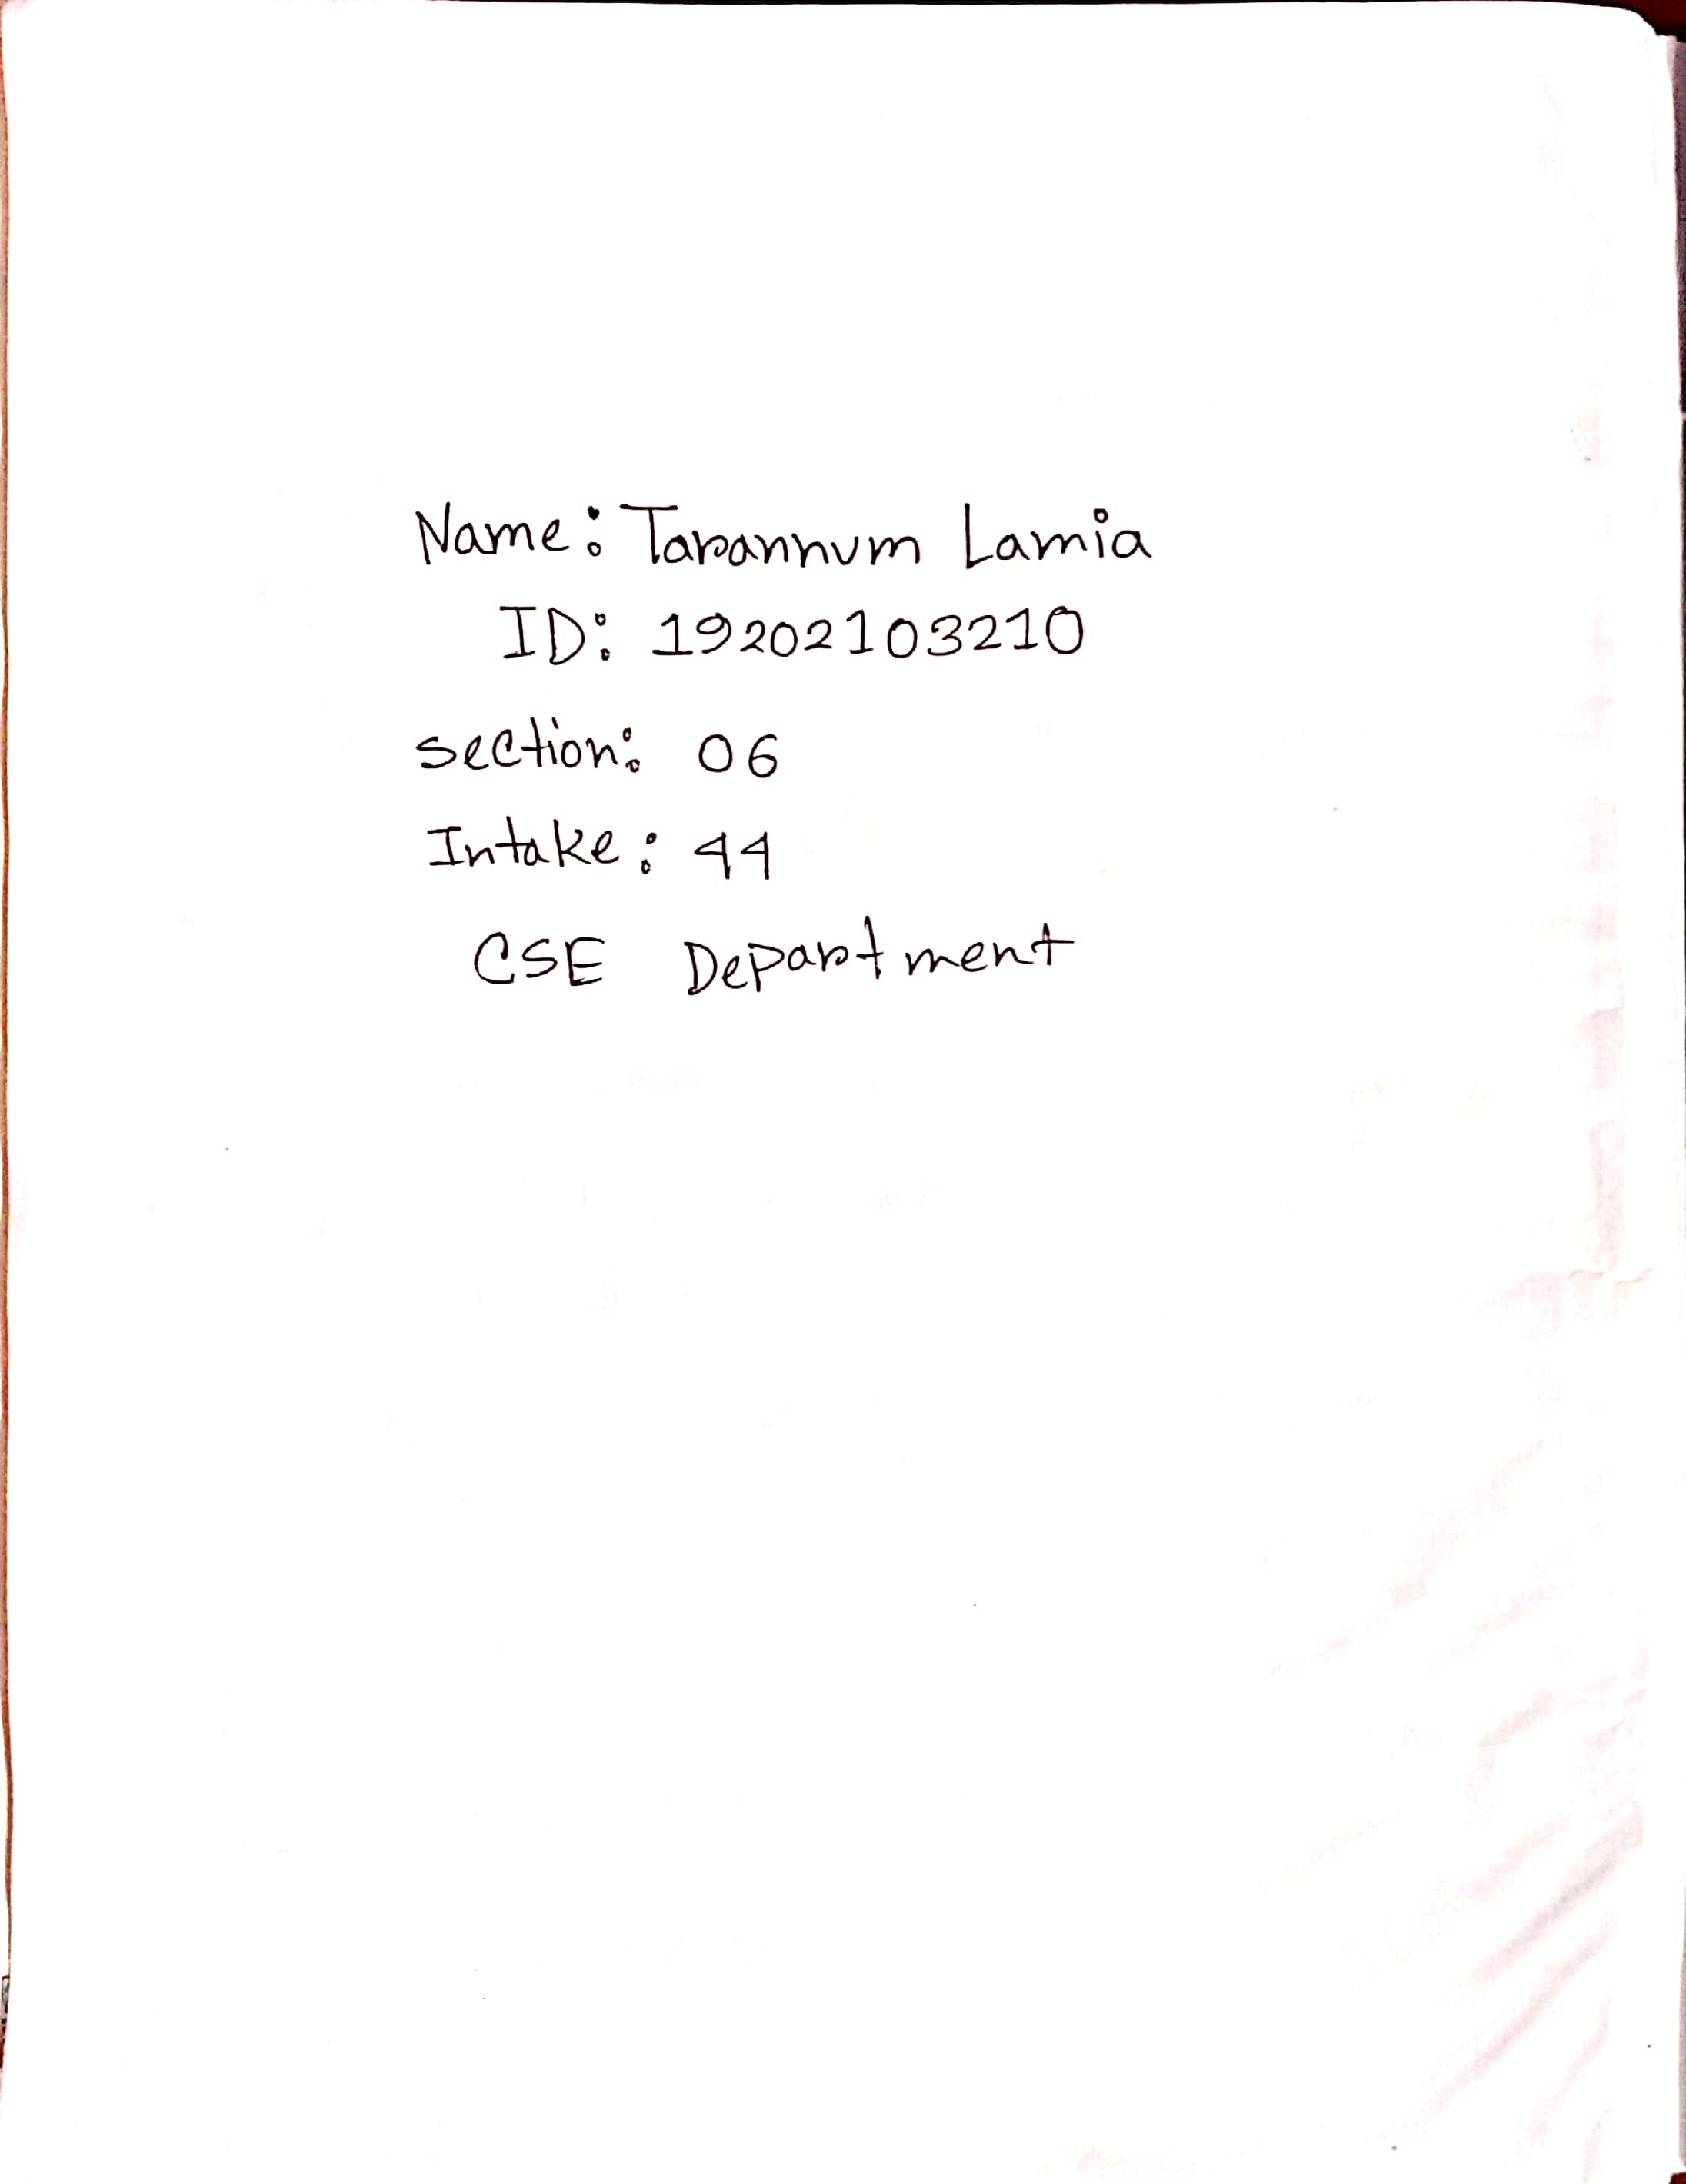 Name: Tarannum Lamia
ID: 19202103210
Section: 06
Intake: 44
CSE Department